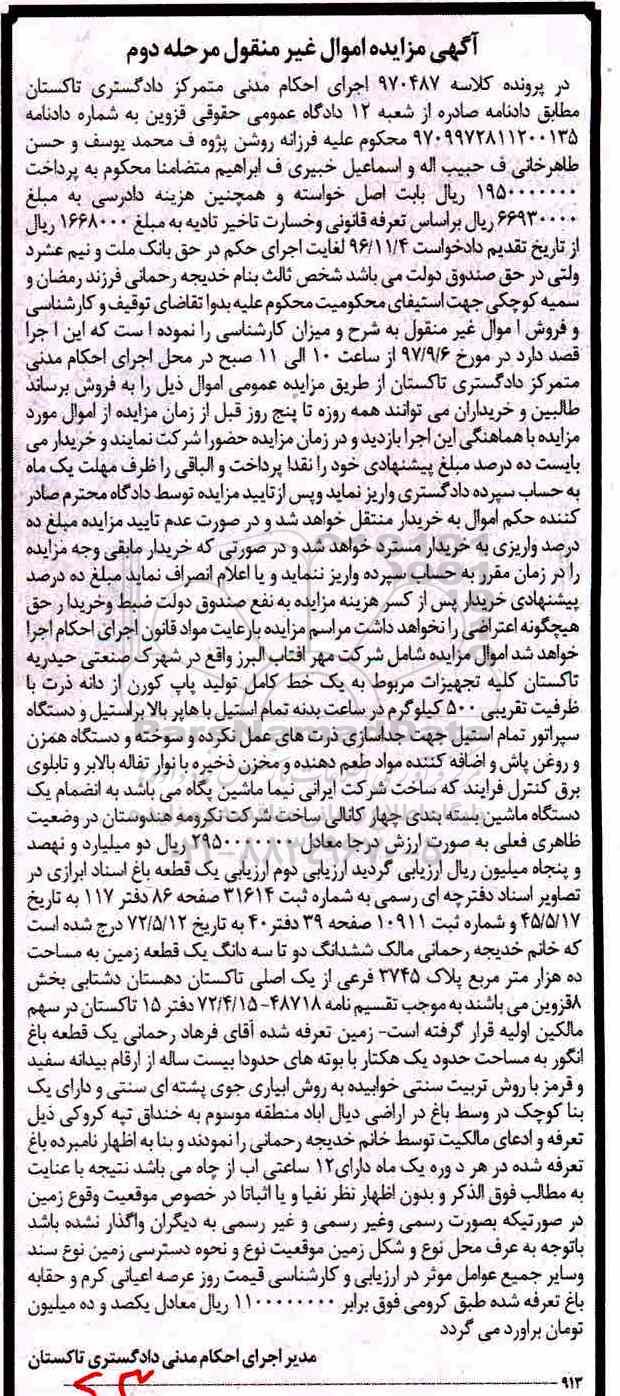 آگهی مزایده اموال غیر منقول مرحله دوم
در پرونده کلاسه ۹۷۰۴۸۷ اجرای احکام مدنی متمرکز دادگستری تاکستان
مطابق دادنامه صادره از شعبه ۱۲ دادگاه عمومی حقوقی قزوین به شماره دادنامه
۹۷۰۹۹۷۲۸۱۱۲۰۰۱۳۵ محکوم علیه فرزانه روشن پژوه ف محمد یوسف و حسن
طاهرخانی ف حبیب اله و اسماعیل خبیری ف ابراهیم متضامنا محکوم به پرداخت
۱۹۵۰۰۰۰۰۰۰ ریال بابت اصل خواسته و همچنین هزینه دادرسی به مبلغ
۶۶۹۳۰۰۰۰ ریال براساس تعرفه قانونی وخسارت تاخیر تادیه به مبلغ ۱۶۶۸۰۰۰ ریال
از تاریخ تقدیم دادخواست ۹۶/۱۱/۴ لغایت اجرای حکم در حق بانک ملت و نیم عشرد
ولتی در حق صندوق دولت می باشد شخص ثالث بنام خدیجه رحمانی فرزند رمضان و
سمیه کوچکی جهت استیفای محکومیت محکوم علیه بدوا تقاضای توقیف و کارشناسی
و فروش ا موال غیر منقول به شرح و میزان کارشناسی را نموده ا ست که این ا جرا
قصد دارد در مورخ ۹۷/۹/۶ از ساعت ۱۰ الی ۱۱ صبح در محل اجرای احکام مدنی
متمرکز دادگستری تاکستان از طریق مزایده عمومی اموال ذیل را به فروش برساند
طالبین و خریداران می توانند همه روزه تا پنج روز قبل از زمان مزایده از اموال مورد
مزایده با هماهنگی این اجرا بازدید و در زمان مزایده حضورا شرکت نمایند و خریدار می
بایست ده درصد مبلغ پیشنهادی خود را نقدا پرداخت و الباقی را ظرف مهلت یک ماه
به حساب سپرده دادگستری واریز نماید وپس ازتایید مزایده توسط دادگاه محترم صادر
کننده حکم اموال به خریدار منتقل خواهد شد و در صورت عدم تایید مزایده مبلغ ده
درصد واریزی به خریدار مسترد خواهد شد و در صورتی که خریدار مابقی وجه مزایده
را در زمان مقرر به حساب سپرده واریز ننماید و یا اعلام انصراف نماید مبلغ ده درصد
پیشنهادی خریدار پس از کسر هزینه مزایده به نفع صندوق دولت ضبط وخریدا ر حق
هیچگونه اعتراضی را نخواهد داشت مراسم مزایده بارعایت مواد قانون اجرای احکام اجرا
خواهد شد اموال مزایده شامل شرکت مهر افتاب البرز واقع در شهرک صنعتی حیدریه
تاکستان کلیه تجهیزات مربوط به یک خط کامل تولید پاپ کورن از دانه ذرت با
ظرفیت تقریبی ۵۰۰ کیلوگرم در ساعت بدنه تمام استیل با هاپر بالا بر استیل و دستگاه
سپراتور تمام استیل جهت جداسازی ذرت های عمل نکرده و سوخته و دستگاه همزن
و روغن پاش و اضافه کننده مواد طعم دهنده و مخزن ذخیره با نوار تفاله بالابر و تابلوی
برق کنترل فرایند که ساخت شرکت ایرانی نیما ماشین پگاه می باشد به انضمام یک
دستگاه ماشین بسته بندی چهار کانالی ساخت شرکت نکرومه هندوستان در وضعیت
ظاهری فعلی به صورت ارزش درجا معادل ۲۹۵۰۰۰۰۰۰۰ ریال دو میلیارد و نهصد
و پنجاه میلیون ریال ارزیابی گردید ارزیابی دوم ارزیابی یک قطعه باغ اسناد ابرازی در
تصاویر اسناد دفترچه ای رسمی به شماره ثبت ۳۱۶۱۴ صفحه ۸۶ دفتر ۱۱۷ به تاریخ
۴۵/۵/۱۷ و شماره ثبت ۱۰۹۱۱ صفحه ۳۹ دفتر۴۰ به تاریخ ۷۲/۵/۱۲ درج شده است
که خانم خدیجه رحمانی مالک ششدانگ دو تا سه دانگ یک قطعه زمین به مساحت
ده هزار متر مربع پلاک ۳۷۴۵ فرعی از یک اصلی تاکستان دهستان دشتابی بخش
۸قزوین می باشند به موجب تقسیم نامه ۴۸۷۱۸- ۷۲/۴/۱۵ دفتر ۱۵ تاکستان در سهم
مالکین اولیه قرار گرفته است- زمین تعرفه شده آقای فرهاد رحمانی یک قطعه باغ
انگور به مساحت حدود یک هکتار با بوته های حدودا بیست ساله از ارقام بیدانه سفید
و قرمز با روش تربیت سنتی خوابیده به روش ابیاری جوی پشته ای سنتی و دارای یک
بنا کوچک در وسط باغ در اراضی دیال اباد منطقه موسوم به خنداق تپه کروکی ذیل
تعرفه و ادعای مالکیت توسط خانم خدیجه رحمانی را نمودند و بنا به اظهار نامبرده باغ
تعرفه شده در هر د وره یک ماه دارای۱۲ ساعتی اب از چاه می باشد نتیجه با عنایت
به مطالب فوق الذکر و بدون اظهار نظر نفیا و یا اثباتا در خصوص موقعیت وقوع زمین
در صورتیکه بصورت رسمی وغیر رسمی و غیر رسمی به دیگران واگذار نشده باشد
باتوجه به عرف محل نوع و شکل زمین موقعیت نوع و نحوه دسترسی زمین نوع سند
وسایر جمیع عوامل موثر در ارزیابی و کارشناسی قیمت روز عرصه اعیانی کرم و حقابه
باغ تعرفه شده طبق کرومی فوق برابر ۱۱۰۰۰۰۰۰۰۰ ریال معادل یکصد و ده میلیون
تومان براورد می گردد
مدیر اجرای احکام مدنی دادگستری تاکستان
۹۱۳